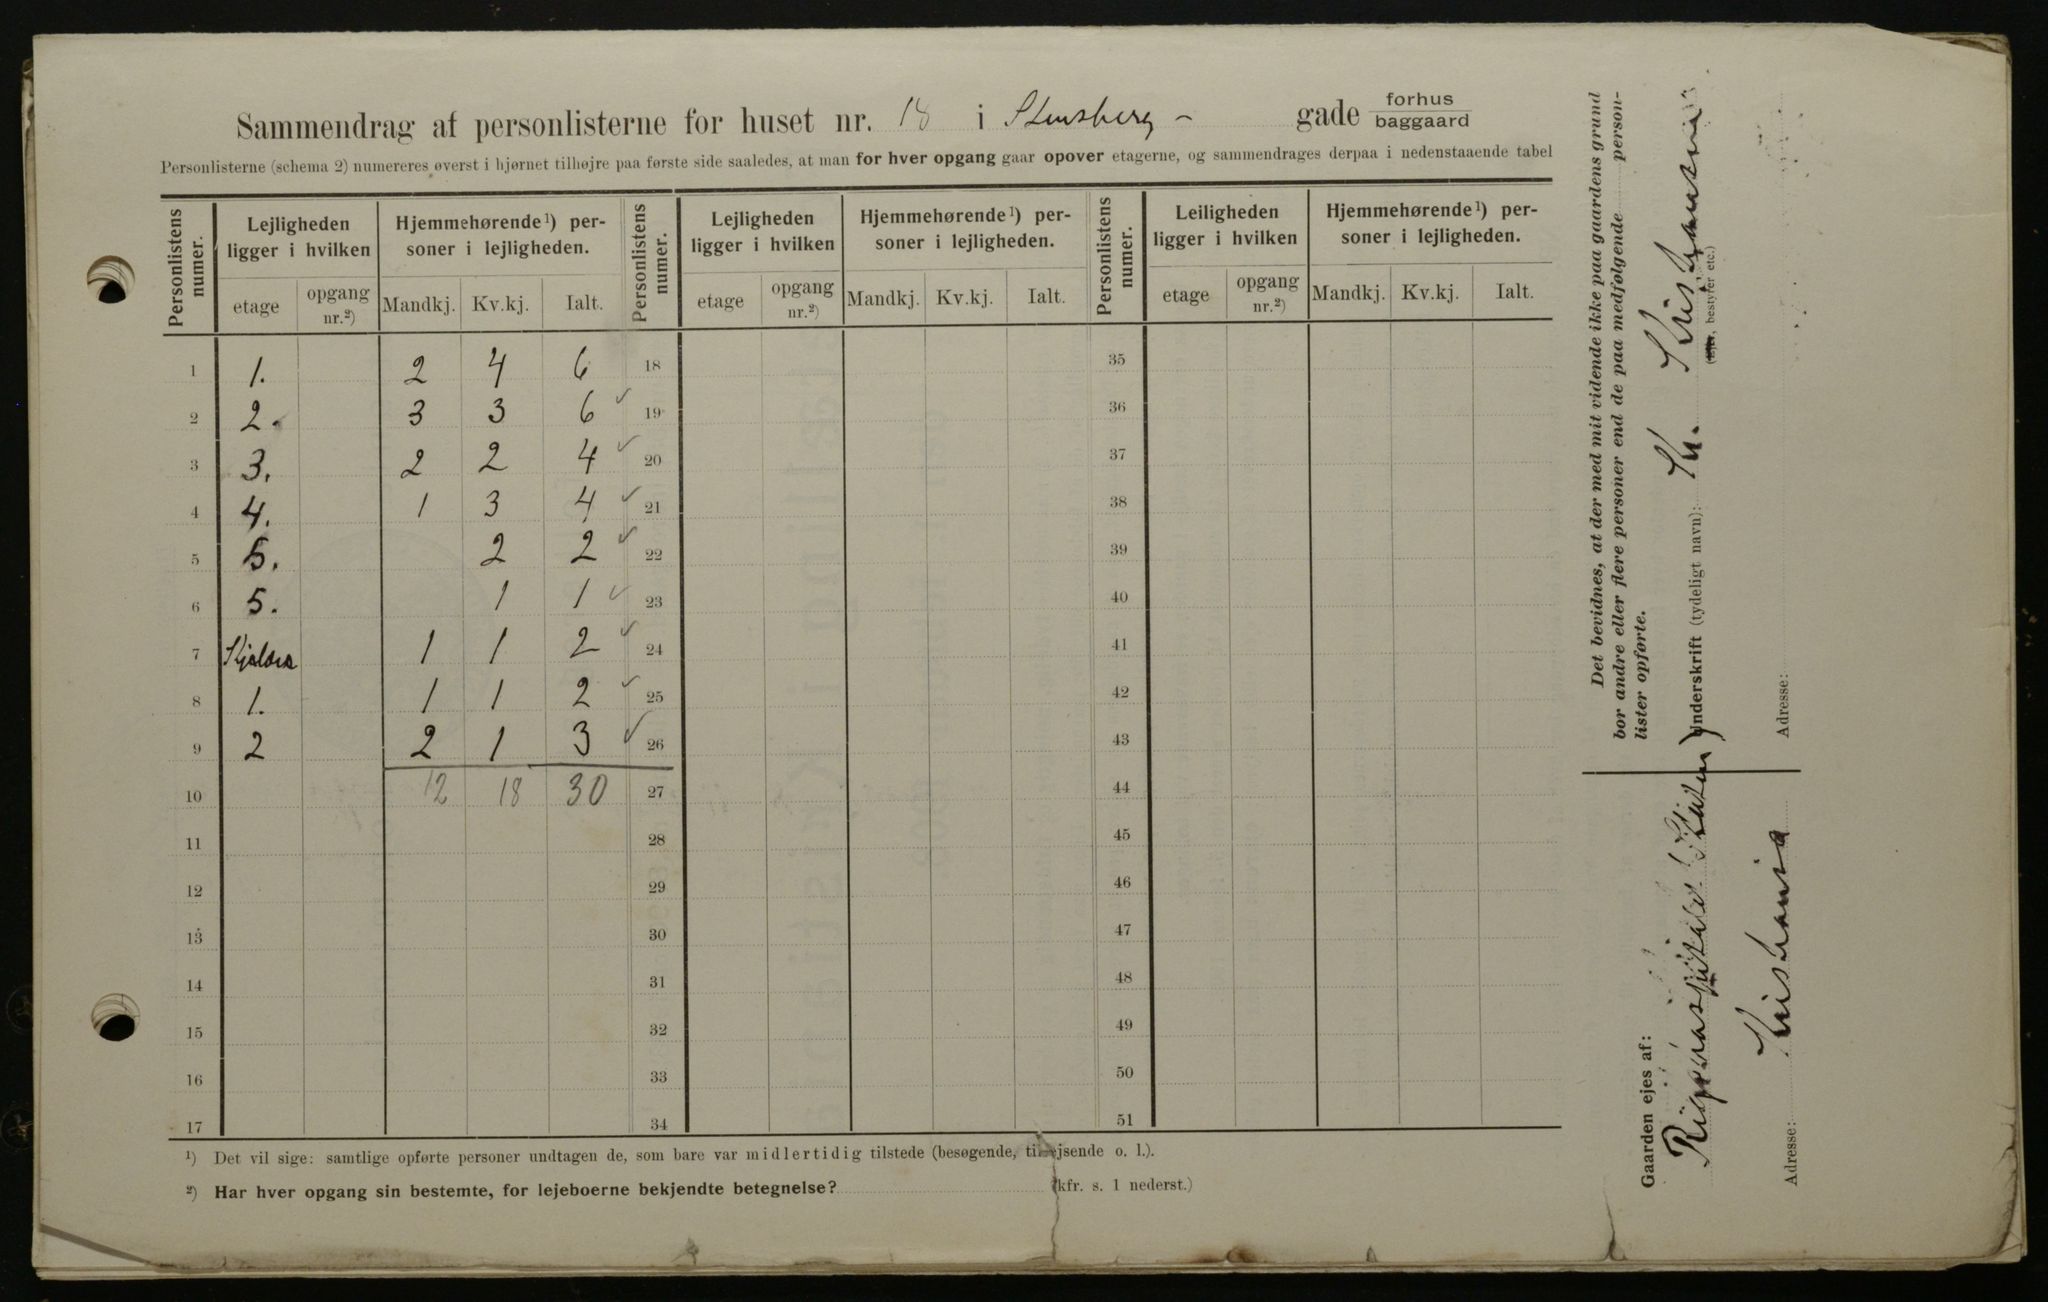 Sammendrag af personlisterne for huset nr. 18 i Stensberg- gade forhus baggaard
Personlisterne (schema 2) numereres øverst i hjørnet tilhøjre paa første side saaledes, at man for hver opgang gaar opover etagerne, og sammendrages derpaa i nedenstaaende tabel
Personlistens numer. Lejligheden ligger i hvilken Hjemmehørende ¹) personer i lejligheden. Personlistens numer. Lejligheden ligger i hvilken Hjemmehørende ¹) personer i lejligheden. Personlistens numer. Leiligheden ligger i hvilken Hjemmehørende ¹) personer i lejligheden.
etage opgang nr.²) Mandkj. Kv.kj. Ialt. etage opgang nr.²) Mandkj. Kv.kj. Ialt. etage opgang nr.²) Mandkj. Kv.kj. Ialt.
1 1. 2 4 6 18 35
2 2. 3 3 6 ✓ 19 36
3 3. 2 2 4 ✓ 20 37
4 4. 1 3 4 ✓ 21 38
5 5. 2 2 ✓ 22 39
6 5. 1 1 ✓ 23 40
7 Kjælder 1 1 2 ✓ 24 41
8 1. 1 1 2 ✓ 25 42
9 2 2 1 3 ✓ 26 43
10 12 18 30 27 44
11 28 45
12 29 46
13 30 47
14 31 48
15 32 49
16 33 50
17 34 51
¹) Det vil sige: samtlige opførte personer undtagen de, som bare var midlertidig tilstede (besøgende, tilrejsende o. l.).
²) Har hver opgang sin bestemte, for lejeboerne bekjendte betegnelse? (kfr. s. 1 nederst.)
Det bevidnes, at der med mit vidende ikke paa gaardens grund
bor andre eller flere personer end de paa medfølgende personlister opførte.
Underskrift (tydeligt navn): Kr. Kristiansen
(ejer, bestyrer etc.)
Adresse:
Gaarden ejes af:
Rigshospitalet (Staten)
Adresse: Kristiania